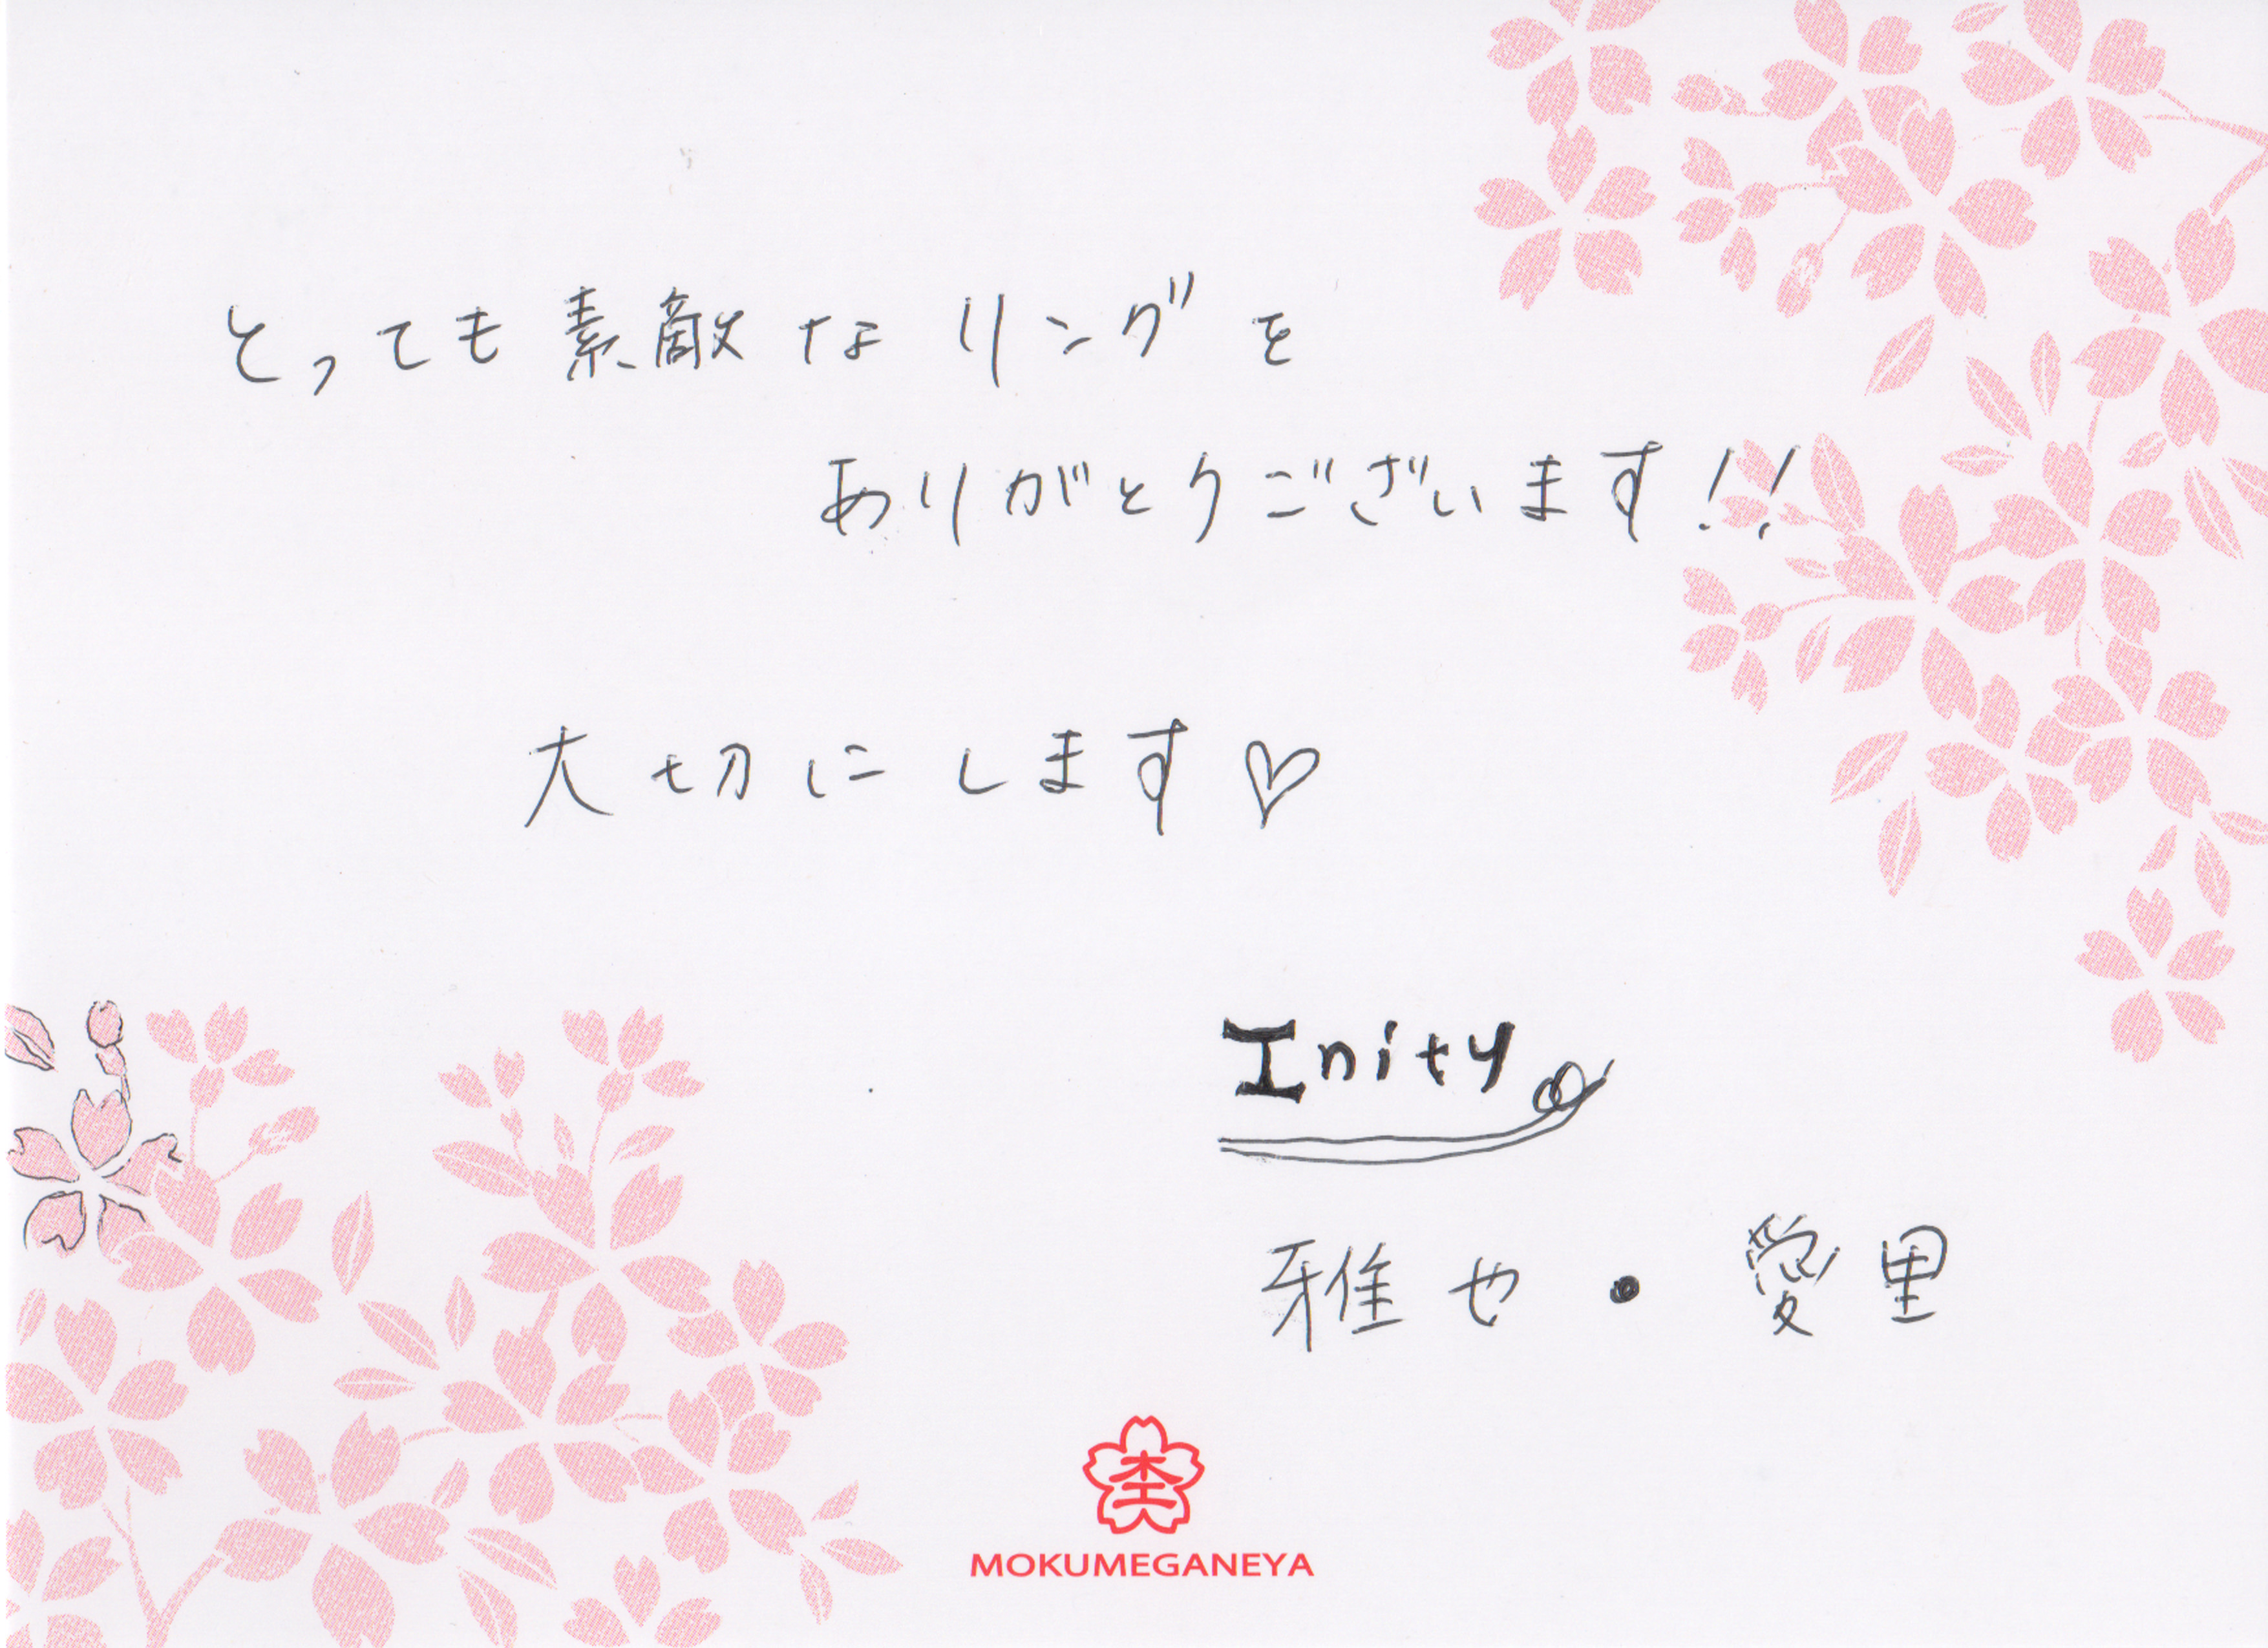 とっても素敵なリングを
ありがとうございます!!
大切にします♡
Inity
雅也・愛里
杢
MOKUMEGANEYA